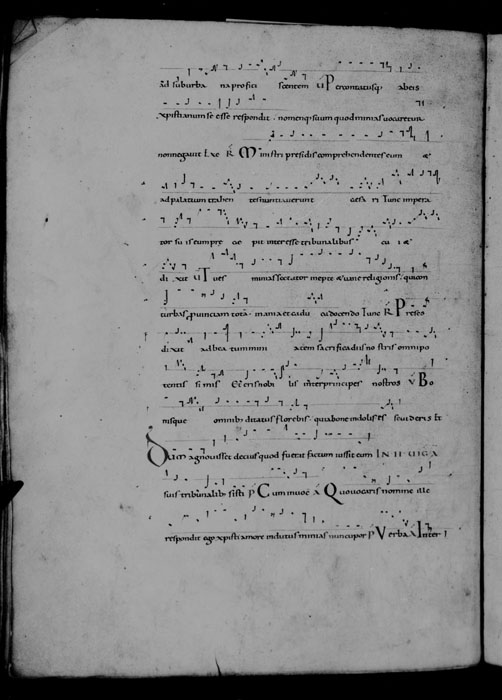 ad suburbana profici scentem V Percontatusq; abeis
xpistianum se esse respondit · nomenq; suum quod minias uocaretur
non negauit Exe R Ministri presidis comprehendentes eum
ad palatium traben tes nuntiauerunt cesa ri Tunc impera
tor su is eum pre ce pit inter esse tribunalibus
di xit V Tu es minias sectator inepte & une religionis · qui con
turbas prouinciam totam mania et cadu ca docendo Tunc R Preses
dixit ad bea tum mini atem sacrifica diis no stris omnipo
tentis si mis Et eris nobi lis inter principes nostros V Bo
nisque omnib; ditatus florebis · qua bone indolis es
Dum agnouisset decius quod fuerat factum iussit eum IN
suis tribunalib; sisti P Cum inuoc A Quo uocaris nomine ille
respondit ego xpisti amore indutus minias nuncupor P Verba A Inter